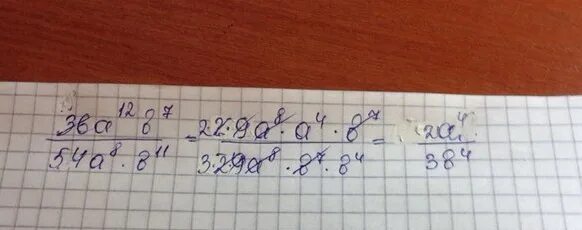 36a¹² b⁷ / 54a⁸ · b¹¹ = 2·2·9a⁸ · a⁴ · b⁷ / 3·2·9a⁸ · b⁷ · b⁴ = 2a⁴ / 3b⁴